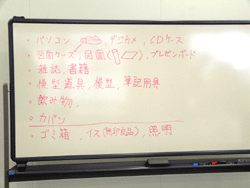 ・パソコン、デジカメ、CDケース
・図面ケース、図面、プレゼンボード
・雑誌、書籍
・模型道具、模型、筆記用具
・飲み物、
・カバン
・ゴミ箱、イス(無印良品)、照明